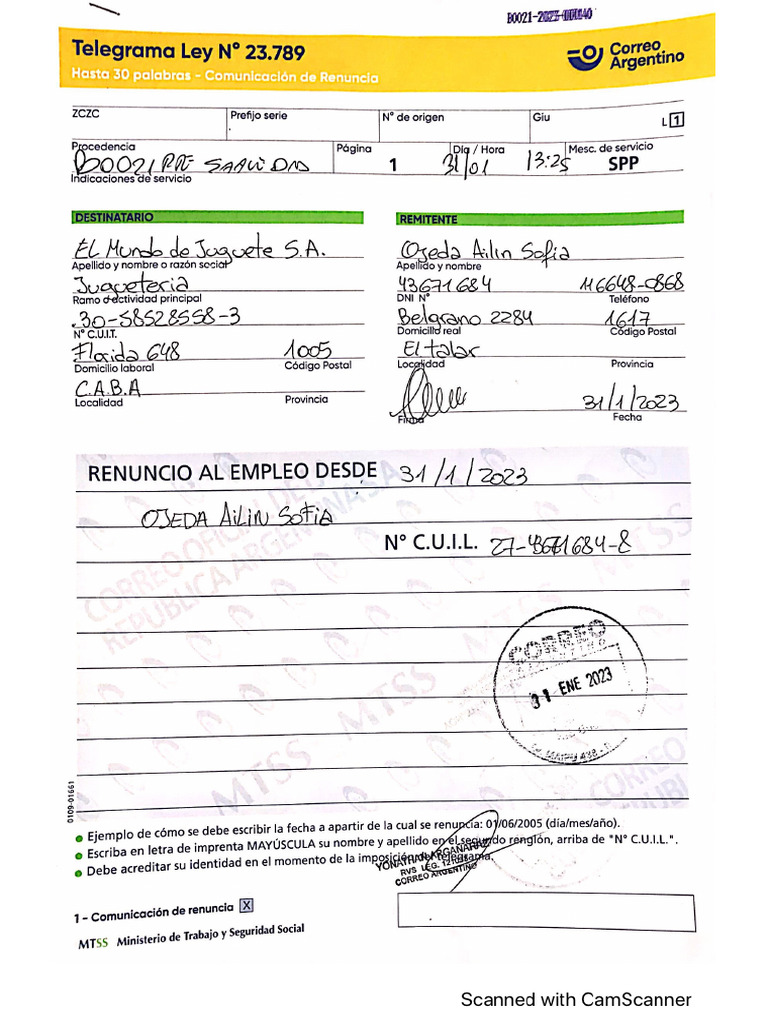 B0021-2023-000040
Telegrama Ley N° 23.789
Hasta 30 palabras - Comunicación de Renuncia
Correo Argentino
ZCZC Prefijo serie N° de origen Giu L 1
Procedencia Página Dia / Hora Mesc. de servicio
B0021 1 31/01 13:25 SPP
Indicaciones de servicio
DESTINATARIO
EL Mundo de Juguete S.A.
Apellido y nombre o razón social
Jugueteria
Ramo o actividad principal
30-58528558-3
N° C.U.I.T.
Florida 648 1005
Domicilio laboral Código Postal
C.A.B.A
Localidad Provincia
REMITENTE
Ojeda Ailin Sofia
Apellido y nombre
43671684 116648-0868
DNI N° Teléfono
Belgrano 2284 1617
Domicilio real Código Postal
El talar
Localidad Provincia
31/1/2023
Firma Fecha
RENUNCIO AL EMPLEO DESDE 31/1/2023
OJEDA AILIN SOFIA
N° C.U.I.L. 27-43671684-8
CORREO OFICIAL DE LA
REPUBLICA ARGENTINA S.A.
MTSS MTSS MTSS
CORREO
31 ENE 2023
0109-01661
Ejemplo de cómo se debe escribir la fecha a apartir de la cual se renuncia: 01/06/2005 (día/mes/año).
Escriba en letra de imprenta MAYÚSCULA su nombre y apellido en el segundo renglón, arriba de "N° C.U.I.L.".
Debe acreditar su identidad en el momento de la imposición del telegrama.
CORREO ARGENTINO
1 - Comunicación de renuncia X
MTSS Ministerio de Trabajo y Seguridad Social
Scanned with CamScanner